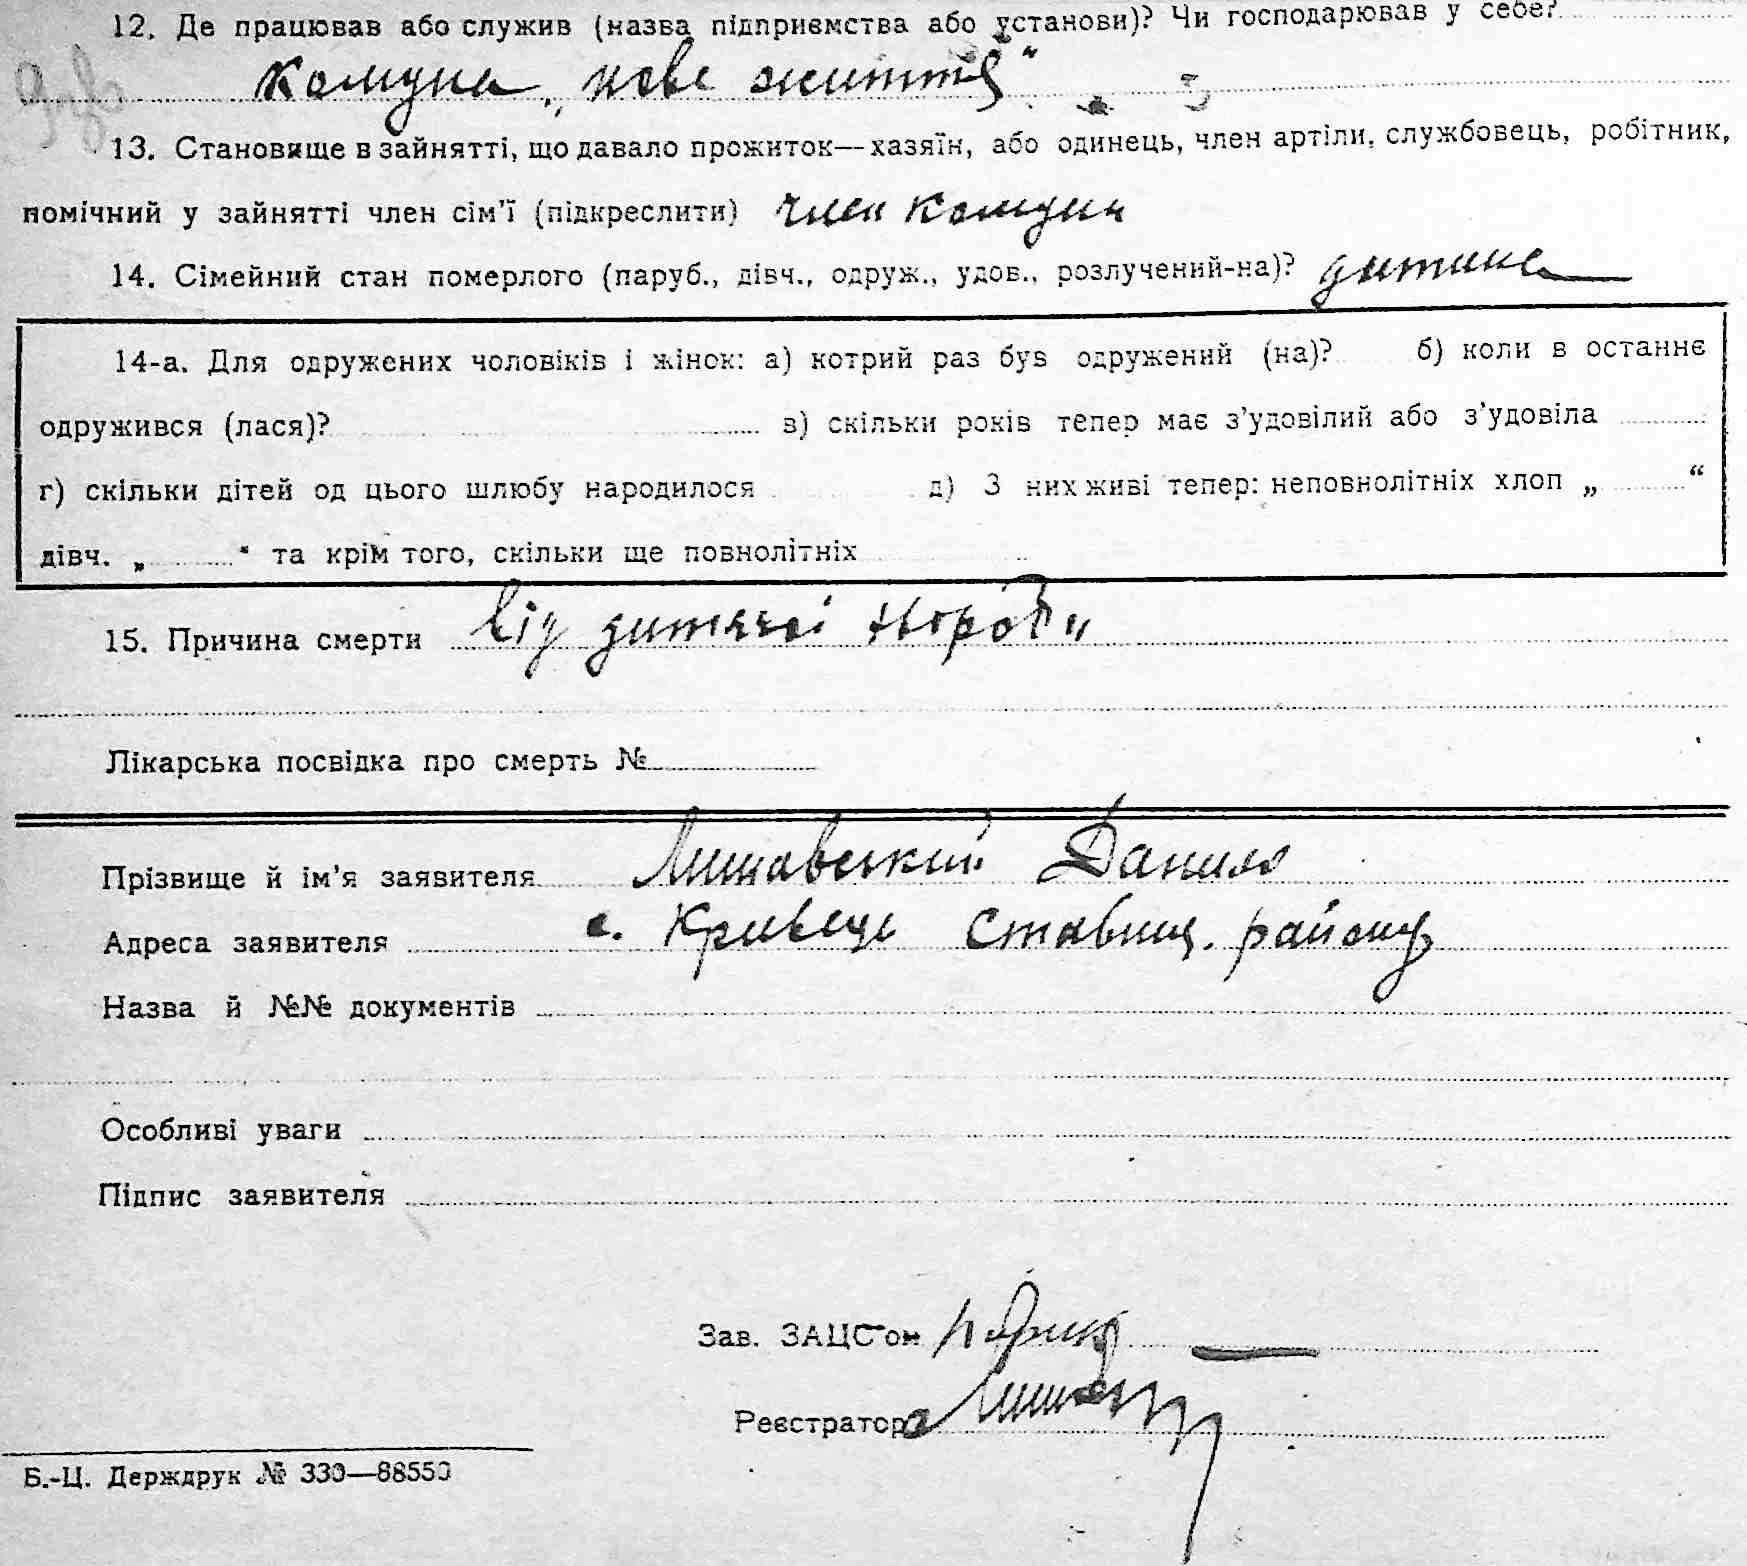 12. Де працював або служив (назва підприємства або установи)? Чи господарював у себе?
комуна „нове життя“
13. Становище в зайнятті, що давало прожиток—хазяїн, або одинець, член артіли, службовець, робітник,
помічний у зайнятті член сім’ї (підкреслити) член комуни
14. Сімейний стан померлого (паруб., дівч., одруж., удов., розлучений-на)? дитина
14-а. Для одружених чоловіків і жінок: а) котрий раз був одружений (на)? б) коли в останнє
одружився (лася)? в) скільки років тепер має з’удовілий або з’удовіла
г) скільки дітей од цього шлюбу народилося д) З них живі тепер: неповнолітніх хлоп „ “
дівч. „ “ та крім того, скільки ще повнолітніх
15. Причина смерти від дитячої хороби
Лікарська посвідка про смерть №
Прізвище й ім’я заявителя Лишавський Данило
Адреса заявителя с. Кривець Ставищ. району
Назва й №№ документів
Особливі уваги
Підпис заявителя
Зав. ЗАЦС’ом
Реєстратор
Б.-Ц. Держдрук № 330—88550